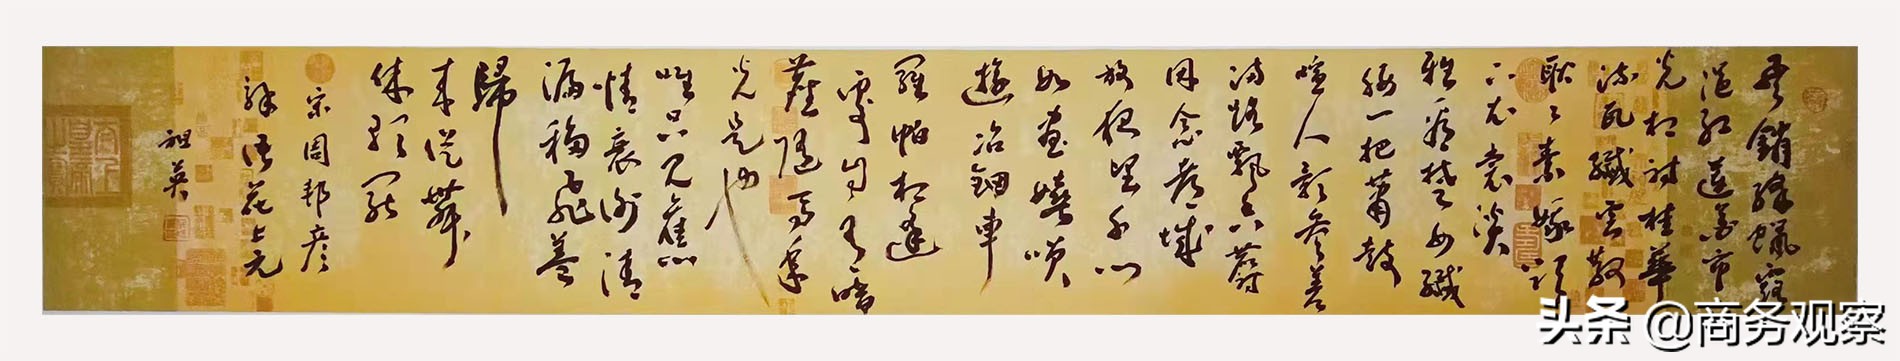 風銷絳蠟露
浥紅蓮燈市
光相射桂華
流瓦纖雲散
耿々素娥欲
下衣裳淡
雅看楚女纖
腰一把簫鼓
喧人影參差
滿路飄香麝
因念都城
放夜望千門
如晝嬉笑
遊冶鈿車
羅帕相逢
處自有暗
塵隨馬年
光是也
唯只見舊
情衰謝清
漏移飛蓋
歸
來從舞
休歌罷
宋周邦彦
解語花上元
祖英
头条 @商务观察